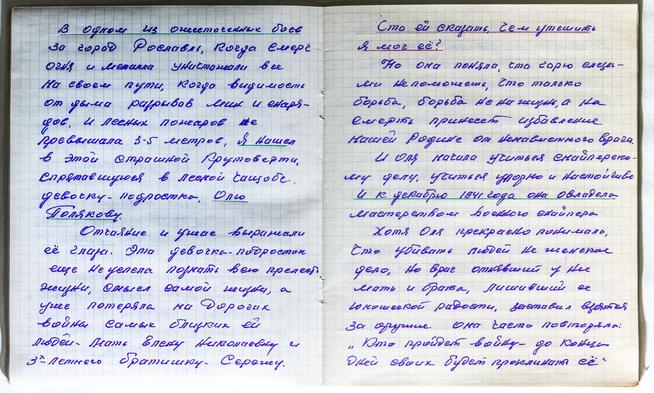 В одном из ожесточенных боев
за город Рославль, когда смерч
огня и металла уничтожали все
на своем пути, когда видимость
от дыма разрывов мин и снаря-
дов, и лесных пожаров не
превышала 3-5 метров, я нашел
в этой страшной круговерти,
спрятавшуюся в лесной чащобе
девочку-подростка, Олю
Полякову.
Отчаяние и ужас выражали
её глаза. Эта девочка-подросток
еще не успела познать всю прелесть
жизни, смысл самой жизни, а
уже потеряла на дорогах
войны самых близких ей
людей - мать Елену Николаевну и
3х летнего братишку - Серёжу.
Что ей сказать, чем утешить
я мог её?
Но она поняла, что горю слеза-
ми не поможешь, что только
борьба, борьба не на жизнь, а на
смерть принесет избавление
нашей Родине от ненавистного врага.
И Оля начала учиться снайперско-
му делу, учиться упорно и настойчиво
и к декабрю 1941 года она овладела
мастерством военного снайпера
Хотя Оля прекрасно понимала,
что убивать людей не женское
дело, но враг отнявший у неё
мать и брата, лишивший её
юношеской радости, заставил взяться
за оружие. она часто повторяла:
„Кто пройдет войну - до конца
дней своих будет проклинать её"